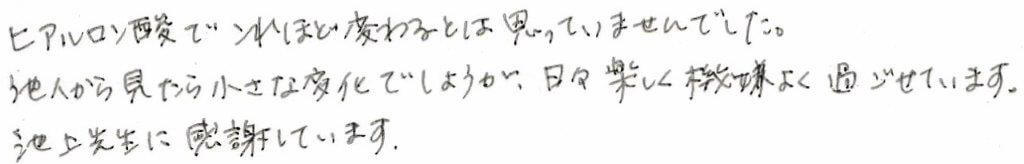 ヒアルロン酸でこれほど変わるとは思っていませんでした。
他人から見たら小さな変化でしょうが、日々楽しく機嫌よく過ごせています。
池上先生に感謝しています.